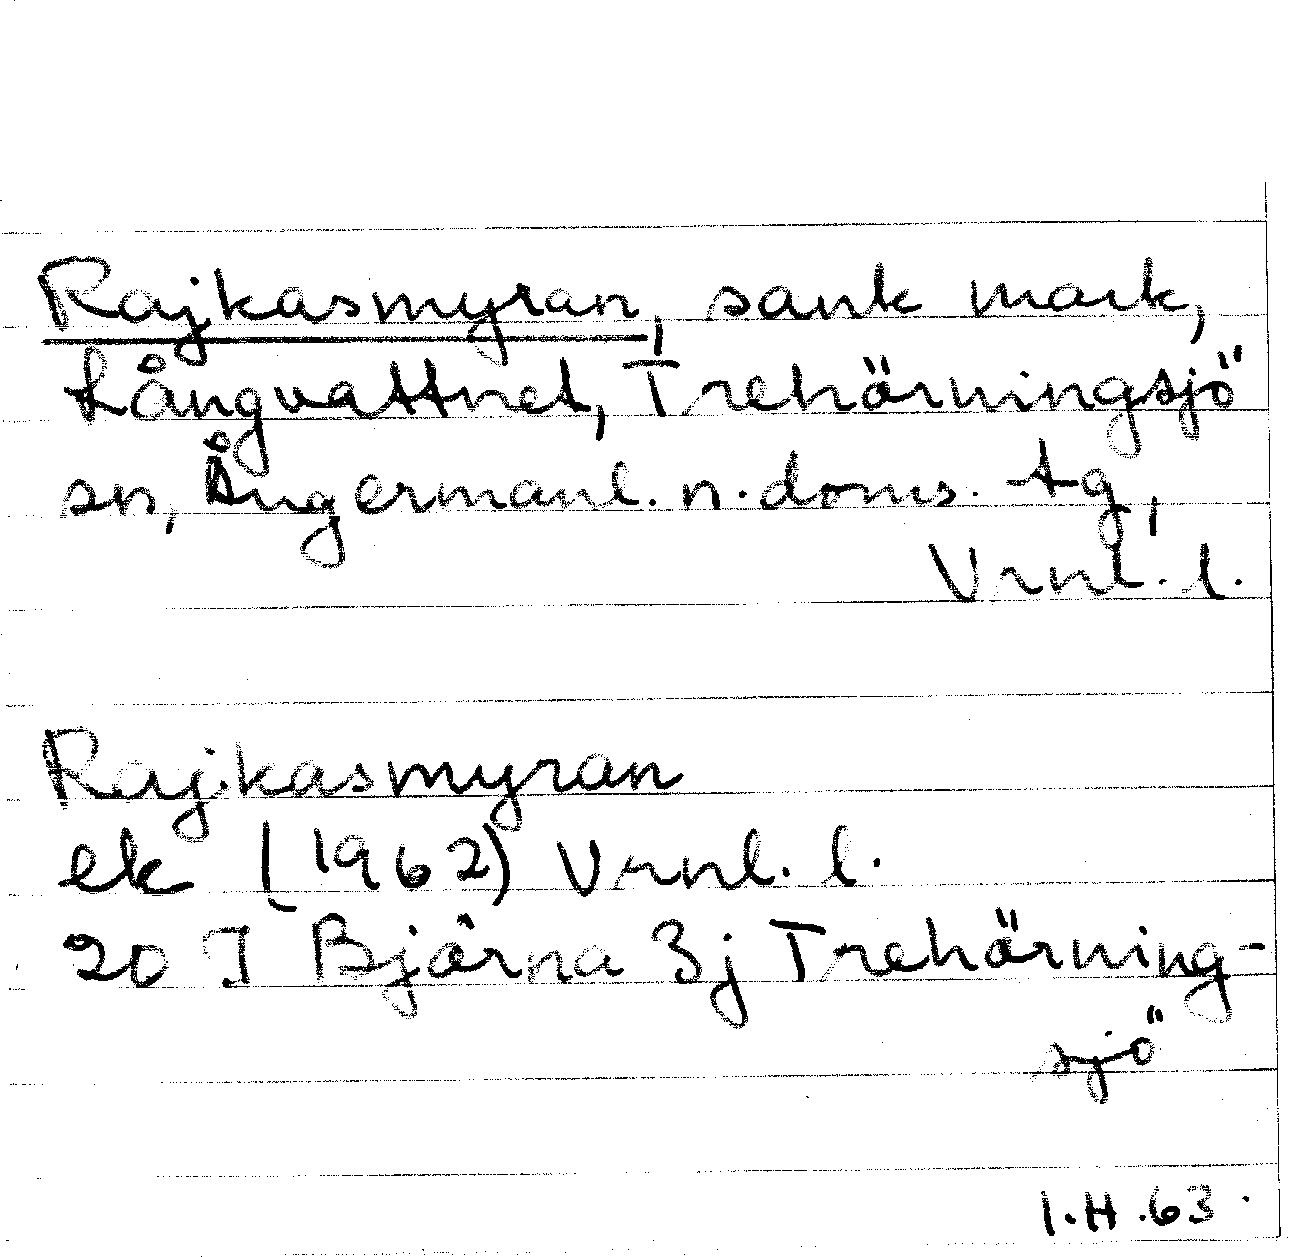 Rajkasmyran, sank mark,
Långvattnet, Trehörningsjö
sn, Ångermanl. n. doms. tg,
Vrnl. l.
Rajkasmyran
ek (1962) Vrnl. l.
20 I Björna 3j Trehörning-
sjö
I.H.63.